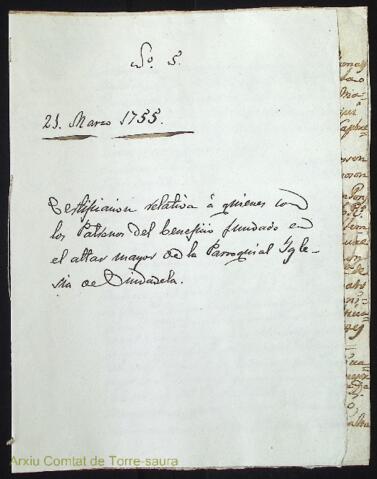 No. 5.
21. Marzo 1755.
Certificacion relativa á quienes son
los Patronos del beneficio fundado en
el altar mayor de la Parroquial Ygle-
sia de Ciudadela.
Arxiu Comtat de Torre-saura